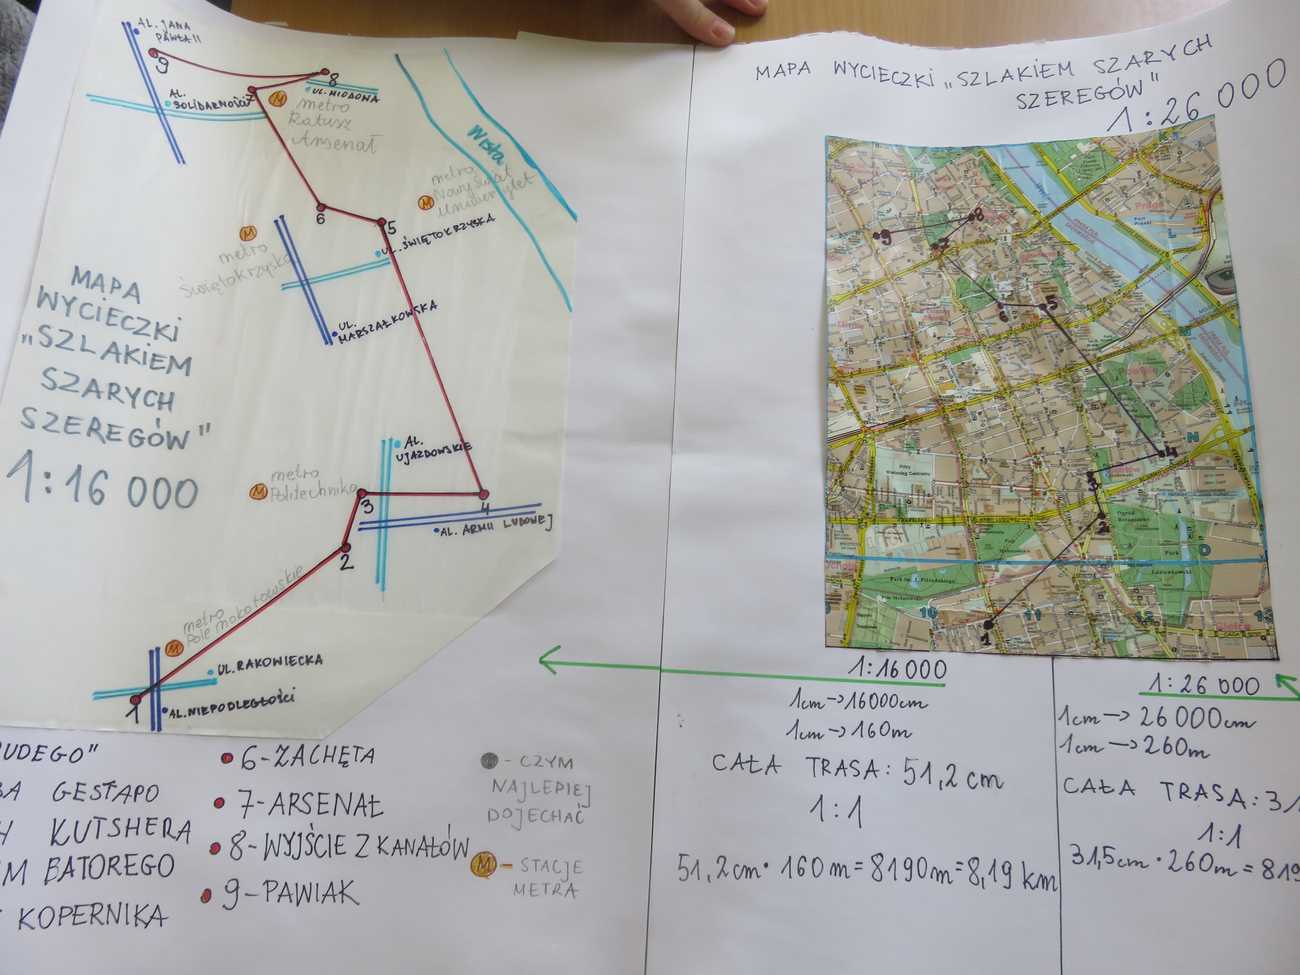 AL. JANA
PAWŁA II
9
8
7
AL.
SOLIDARNOŚCI
UL. MIODOWA
M
metro
Ratusz
Arsenał
Wisła
metro
Nowy Świat
Uniwersytet
M
6
5
M
metro
Świętokrzyska
UL. ŚWIĘTOKRZYSKA
UL.
MARSZAŁKOWSKA
MAPA
WYCIECZKI
„SZLAKIEM
SZARYCH
SZEREGÓW"
1:16 000
AL.
UJAZDOWSKIE
metro
M Politechnika
3
4
AL. ARMII LUDOWEJ
2
metro
Pole Mokotowskie
M
UL. RAKOWIECKA
1
AL. NIEPODLEGŁOŚCI
UDEGO"
BA GESTAPO
H KUTSHERA
M BATOREGO
KOPERNIKA
6-ZACHĘTA
7-ARSENAŁ
8-WYJŚCIE Z KANAŁÓW
9-PAWIAK
- CZYM
NAJLEPIEJ
DOJECHAĆ
M - STACJE
METRA
MAPA WYCIECZKI „SZLAKIEM SZARYCH
SZEREGÓW"
1:26 000
8
9
7
6
5
4
3
2
1
10
11
12
13
N
O
Park
Łazienkowski
1:16000
1cm→16000cm
1cm→160m
CAŁA TRASA: 51,2 cm
1:1
51,2cm · 160m = 8190m = 8,19 km
1:26 000
1cm→26000cm
1cm→260m
CAŁA TRASA: 31
1:1
31,5cm · 260m = 819